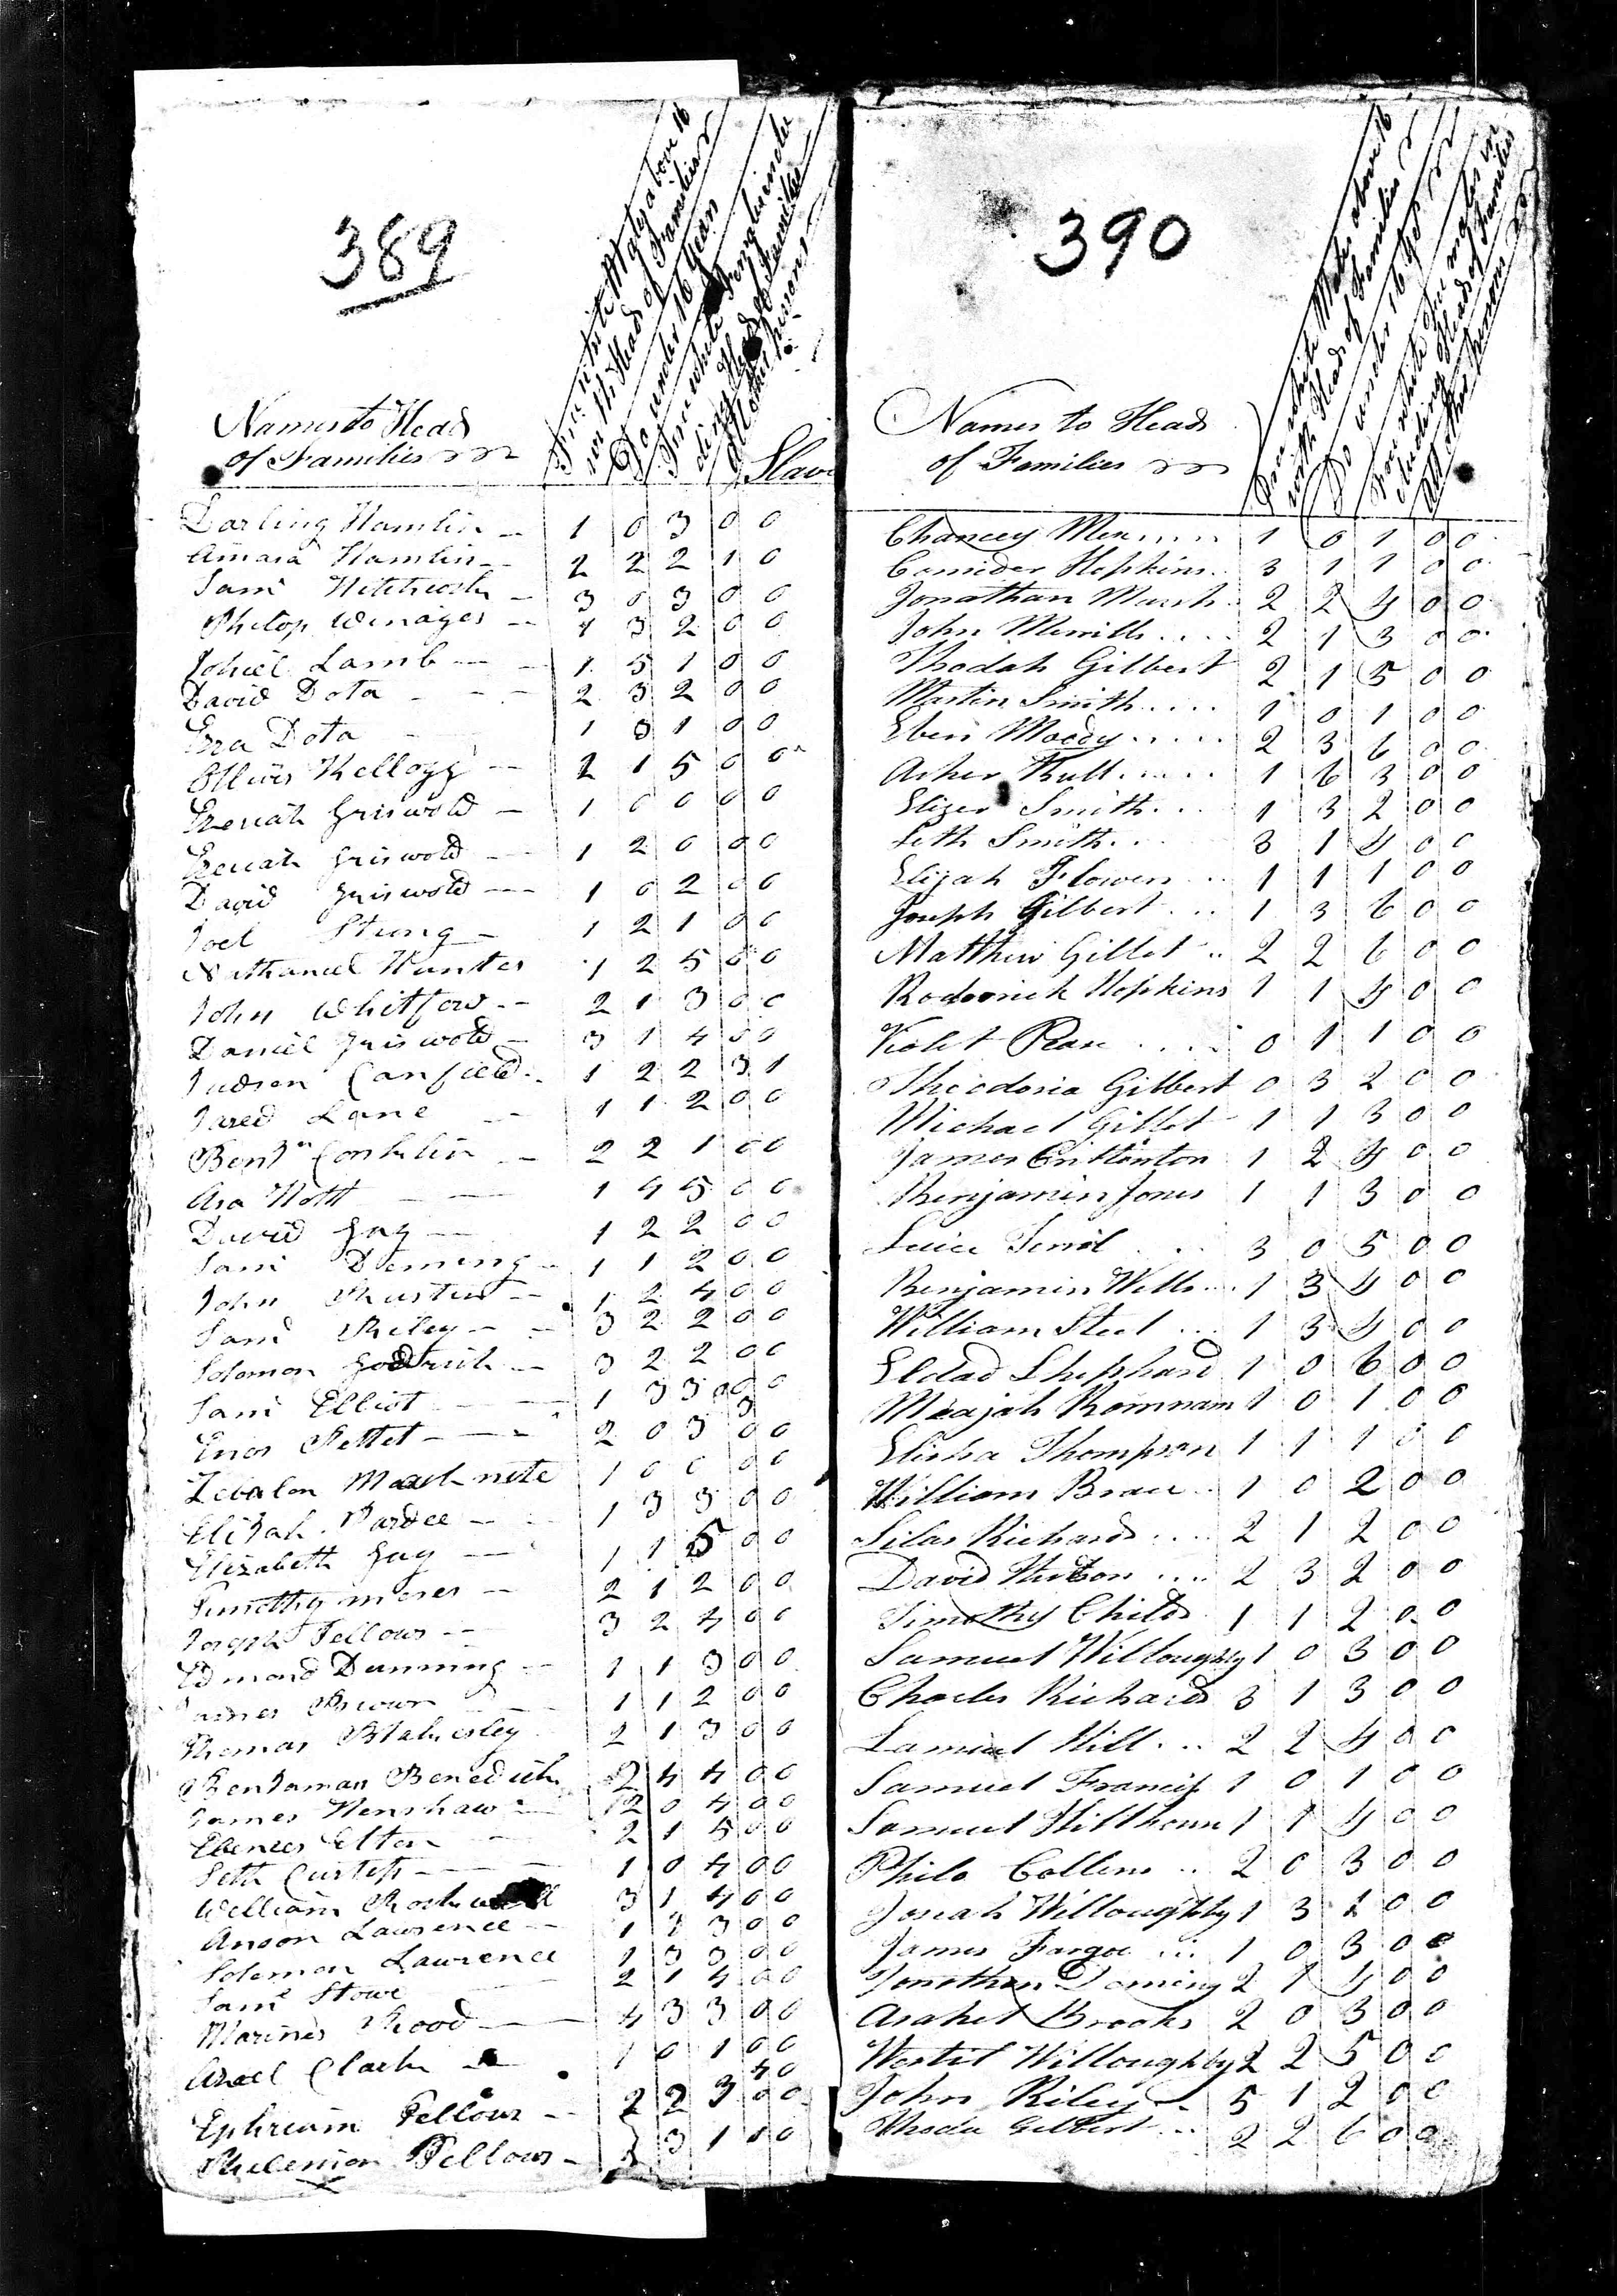 389
Free white Males above 16
with Heads of Families
Do under 16 years
Free white Females including Heads of Families
All other persons
Names to Head
of Families
Slav
Darling Hamlin 1 0 3 0 0
Amasa Hamlin 2 2 2 1 0
Sam 3 0 3 0 0
Philop 3 2 0 0
Lamb 1 5 1 0 0
David Dota 2 3 2 0 0
Ezra Dota 1 3 1 0 0
Olliver Kellogg 2 1 5 0 0
Griswold 1 0 0 0 0
Griswold 1 2 0 0 0
David Griswold 1 0 2 0 0
Joel Strong 1 2 1 0 0
Nathaniel Hunter 1 2 5 0 0
John 2 1 3 0 0
Daniel Griswold 3 1 4 0 0
Judson Canfield 1 2 2 3 1
Jared Lane 1 1 2 0 0
Benjn Conklin 2 2 1 0 0
Asa Nott 1 4 5 0 0
David Gay 1 2 2 0 0
Sam Deming 1 1 2 0 0
John 1 2 4 0 0
Sam Riley 3 2 2 0 0
Solomon 3 2 2 0 0
Sam Elliot 1 3 3 0 0
Enos Pettet 2 0 3 0 0
Zebalon 1 0 0 0 0
Elijah Pardee 1 3 3 0 0
Elizabeth Gay 1 1 5 0 0
Timothy 2 1 2 0 0
Joseph Fellows 3 2 4 0 0
Edmond Dunning 1 1 3 0 0
James Brown 1 1 2 0 0
Thomas Blakesley 2 1 3 0 0
Benjaman Benedick 2 4 4 0 0
James Henshaw 2 0 4 0 0
Elton 2 1 5 0 0
Seth Curtiss 1 0 4 0 0
William 3 1 4 0 0
Anson Lawrence 1 1 3 0 0
Solomon Lawrence 1 3 3 0 0
Sam Stowe 2 1 4 0 0
Rood 4 3 3 0 0
Clark 1 0 1 0 0
Ephriaim Fellows 2 2 3 0 0
Philemon Fellows 3 1 1 0
390
Free white Males above 16
with Heads of Families
Do under 16 yrs
Free white Females including Heads of Families
All other persons
Names to Head
of Families
Chancey 1 0 1 0 0
Consider Hopkins 3 1 1 0 0
Jonathan Marsh 2 2 4 0 0
John Merrills 2 1 3 0 0
Thodah Gilbert 2 1 5 0 0
Martin Smith 1 0 1 0 0
Eben Moody 2 3 6 0 0
Asher 1 6 3 0 0
Elizer Smith 1 3 2 0 0
Seth Smith 3 1 4 0 0
Elijah Flowers 1 1 1 0 0
Joseph Gilbert 1 3 6 0 0
Matthew Gillet 2 2 6 0 0
Roderick Hopkins 1 1 4 0 0
Violet 0 1 1 0 0
Theodoria Gilbert 0 3 2 0 0
Michael Gillet 1 1 3 0 0
James Crittenton 1 2 4 0 0
Benjamin Jones 1 1 3 0 0
3 0 5 0 0
Benjamin Wells 1 3 4 0 0
William Steel 1 3 4 0 0
Eldad Shephard 1 0 6 0 0
1 0 1 0 0
Elisha Thompson 1 1 1 0 0
William Brace 1 0 2 0 0
Silas Richards 2 1 2 0 0
David 2 3 2 0 0
Timothy Childs 1 1 2 0 0
Samuel Willoughby 1 0 3 0 0
Charles Richards 3 1 3 0 0
Hill 2 2 4 0 0
Samuel Francis 1 0 1 0 0
Samuel 1 1 4 0 0
Philo Collens 2 0 3 0 0
Josiah Willoughby 1 3 1 0 0
James Fargoe 1 0 3 0 0
Jonathan Deming 2 1 4 0 0
Asahel Brooks 2 0 3 0 0
Willoughby 2 2 5 0 0
John Riley 5 1 2 0 0
Gilbert 2 2 6 0 0